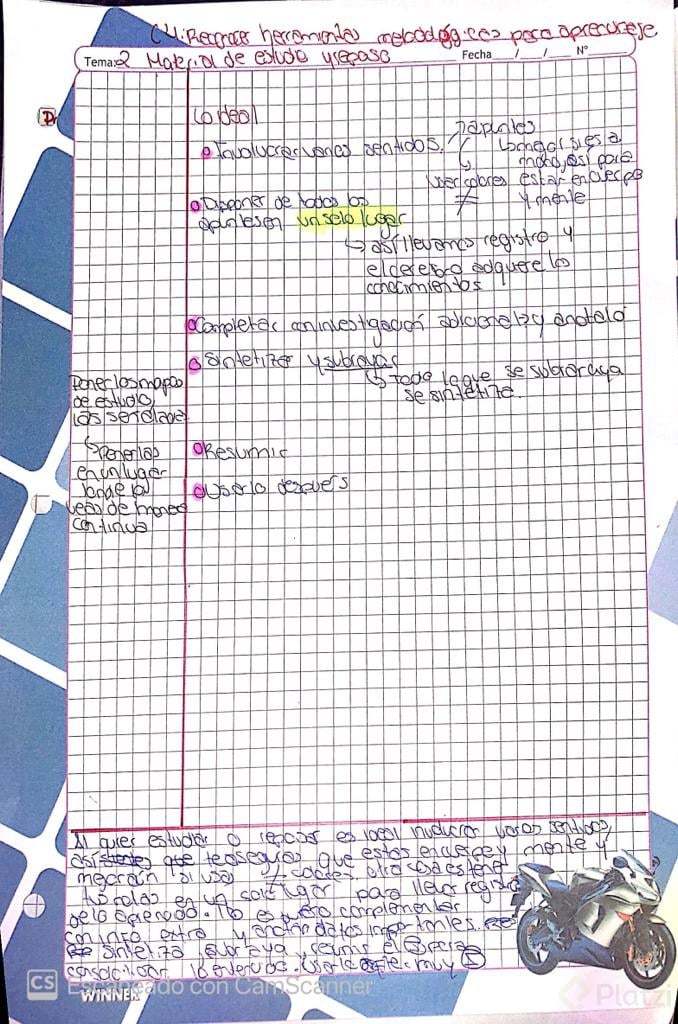 C4: Reconocer herramientas metodológicas para aprendizaje.
Tema: 2 Material de estudio y repaso Fecha / / N°
Lo ideal
Involucrar varios sentidos.
apuntes
a
mano, así para
usar colores estar en cuerpo
≠ y mente
Disponer de todos los
apuntes en un solo lugar
así llevamos registro y
el cerebro adquiere los
conocimientos
Completar con investigación adicional y anotalo
Sintetizar y subrayar
Todo lo que se subraya
se sintetiza.
Poner los mapas
de estudio,
las
Ponerlos
en un lugar
donde los
veas de manera
continua
Resumir
Usarlo después
Si quies estudiar o repasar es ideal involucrar varios sentidos,
así que te aseguras que estas en cuerpo y mente y
si usas
tus notas en un solo lugar para llevar registro
de lo aprendido. complementar
con info extra y anotar datos importantes.
sintetiza, subraya y resume
CS Escaneado con CamScanner
WINNER
Platzi